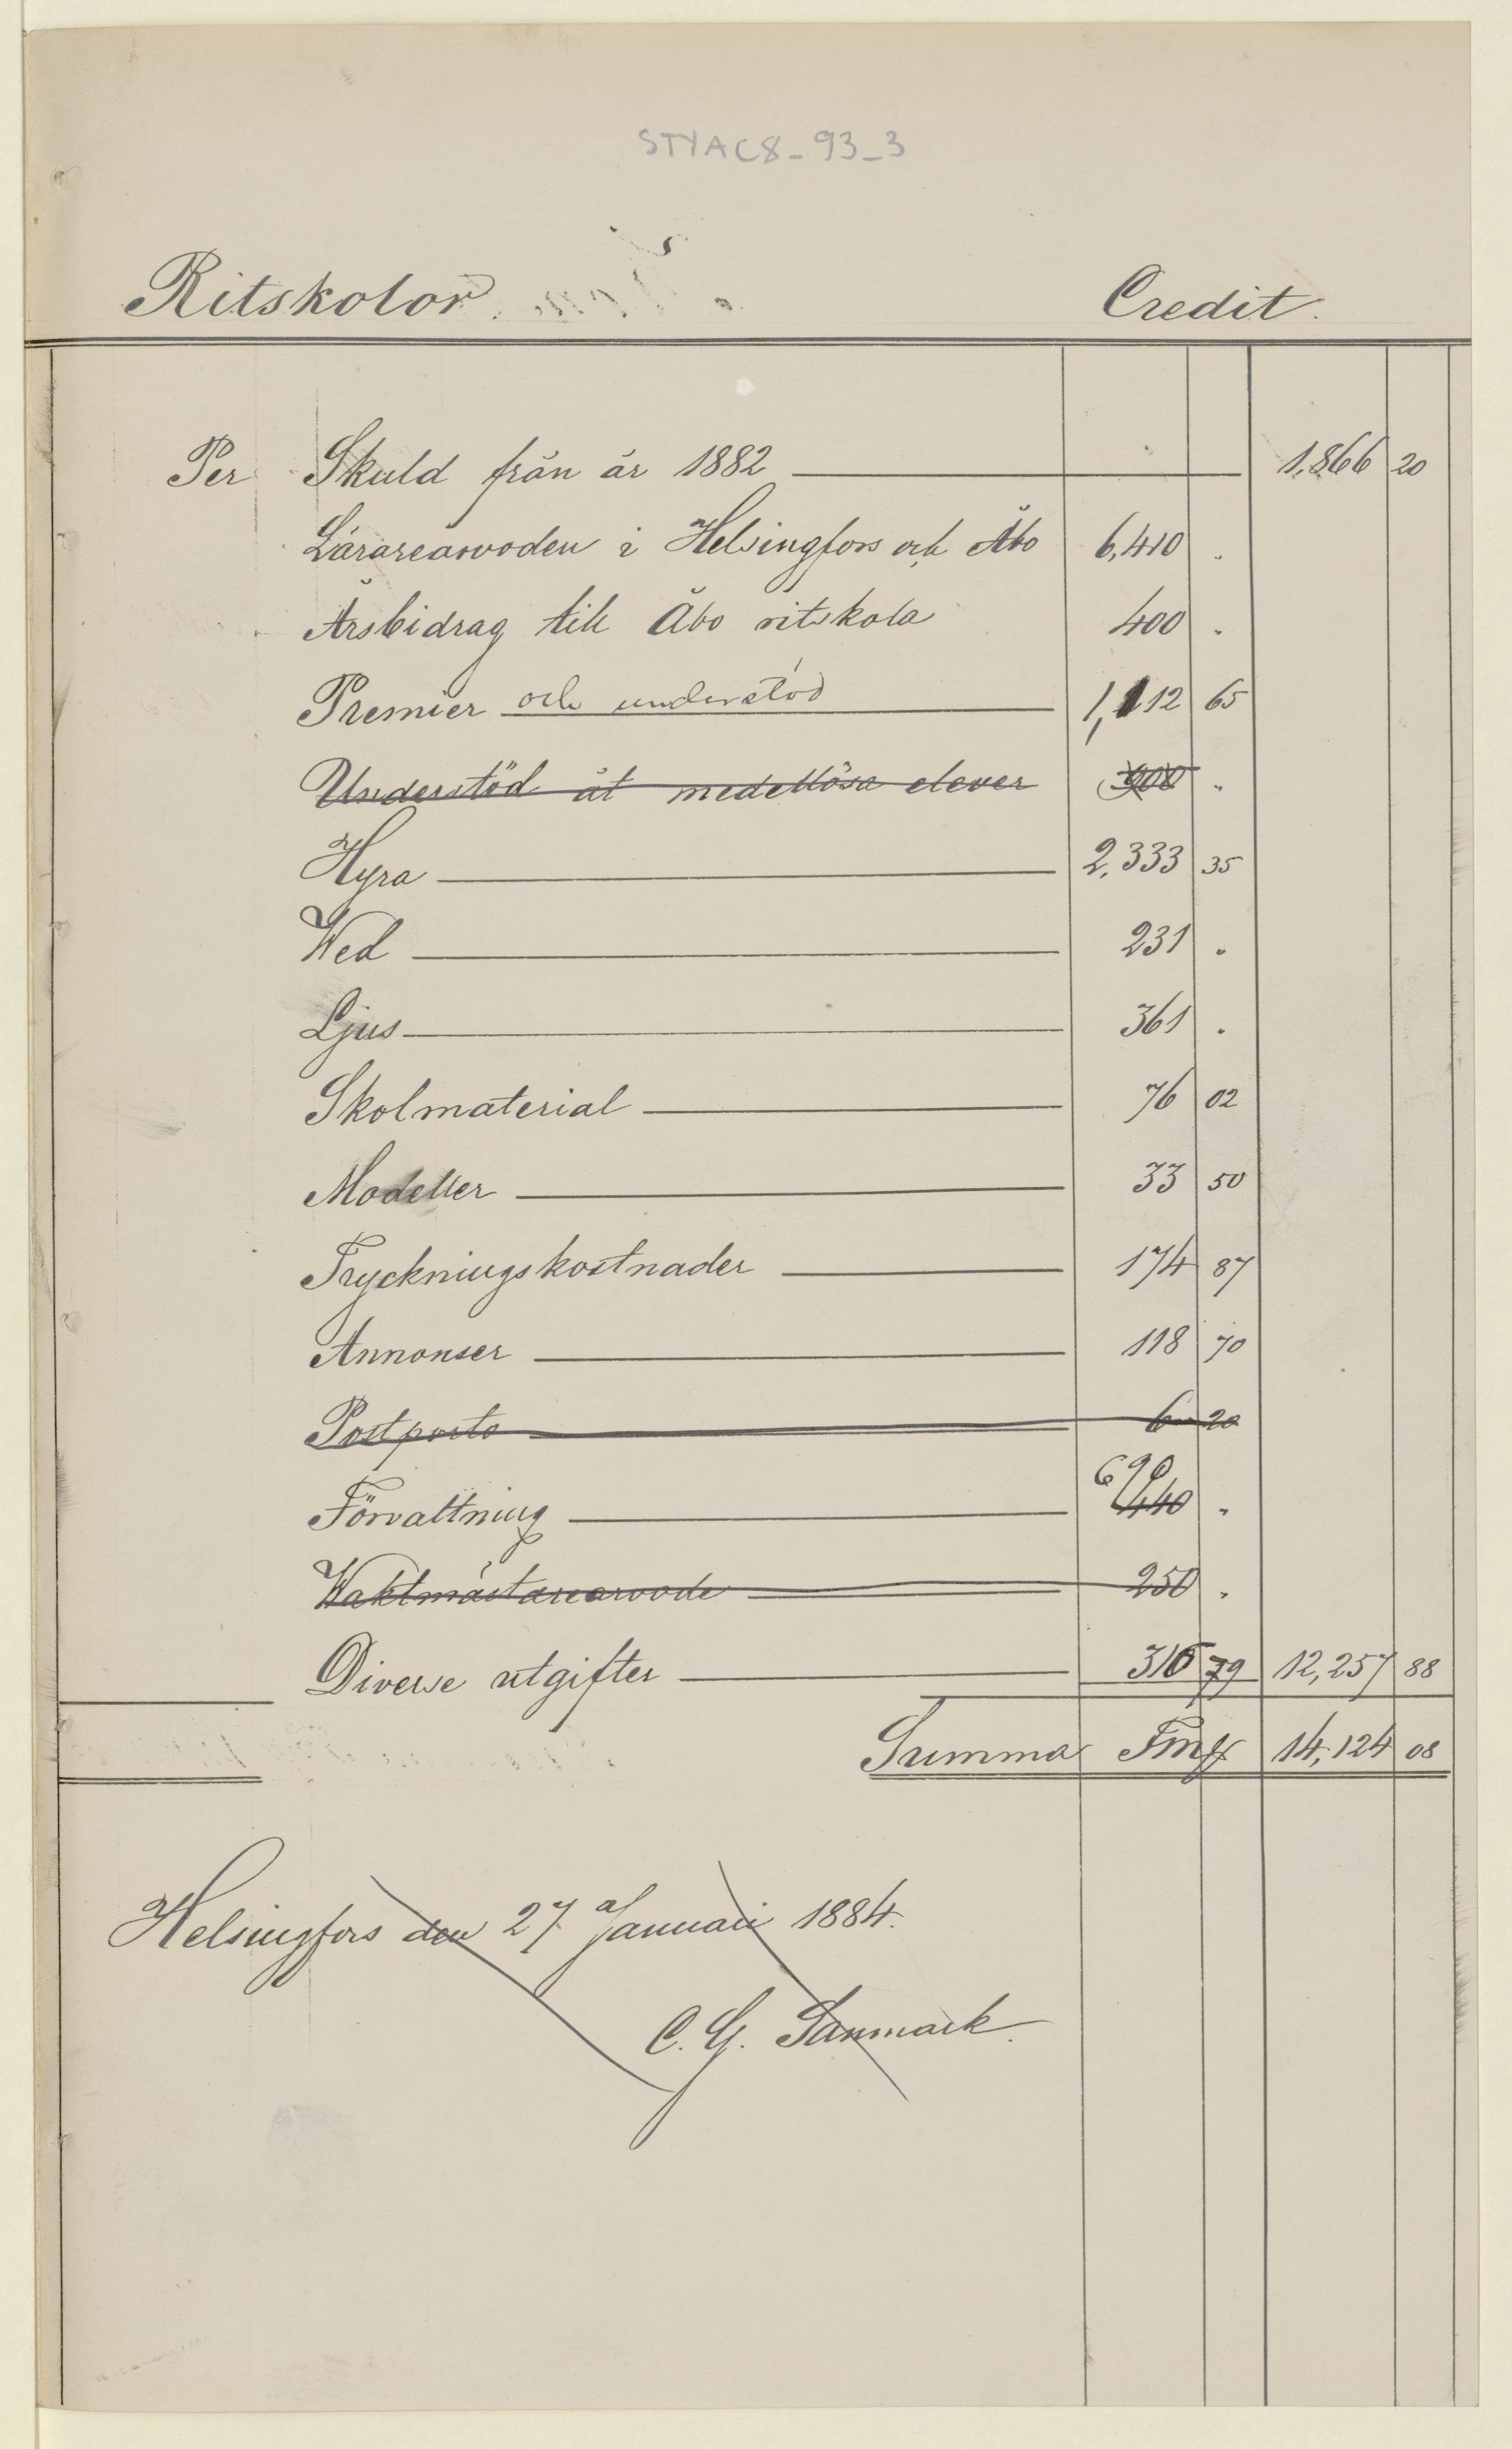 STYAC8_93_3
Ritskolor. Credit.
Per Skuld från år 1882 1,866 20
Lärarearvoden i Helsingfors och Åbo 6,410 "
Årsbidrag till Åbo ritskola 400 "
Premier och understöd 1,112 65
Understöd åt medellösa elever 900 "
Hyra 2,333 35
Wed 231 "
Ljus 361 "
Skolmaterial 76 02
Modeller 33 50
Tryckningskostnader 174 87
Annonser 118 70
Postporto 6 20
690
Förvaltning 440 "
Waktmästarearvode 250 "
Diverse utgifter 316 79 12,257 88
Summa Fmk 14,124 08
Helsingfors den 27 Januari 1884.
C. G. Sanmark.